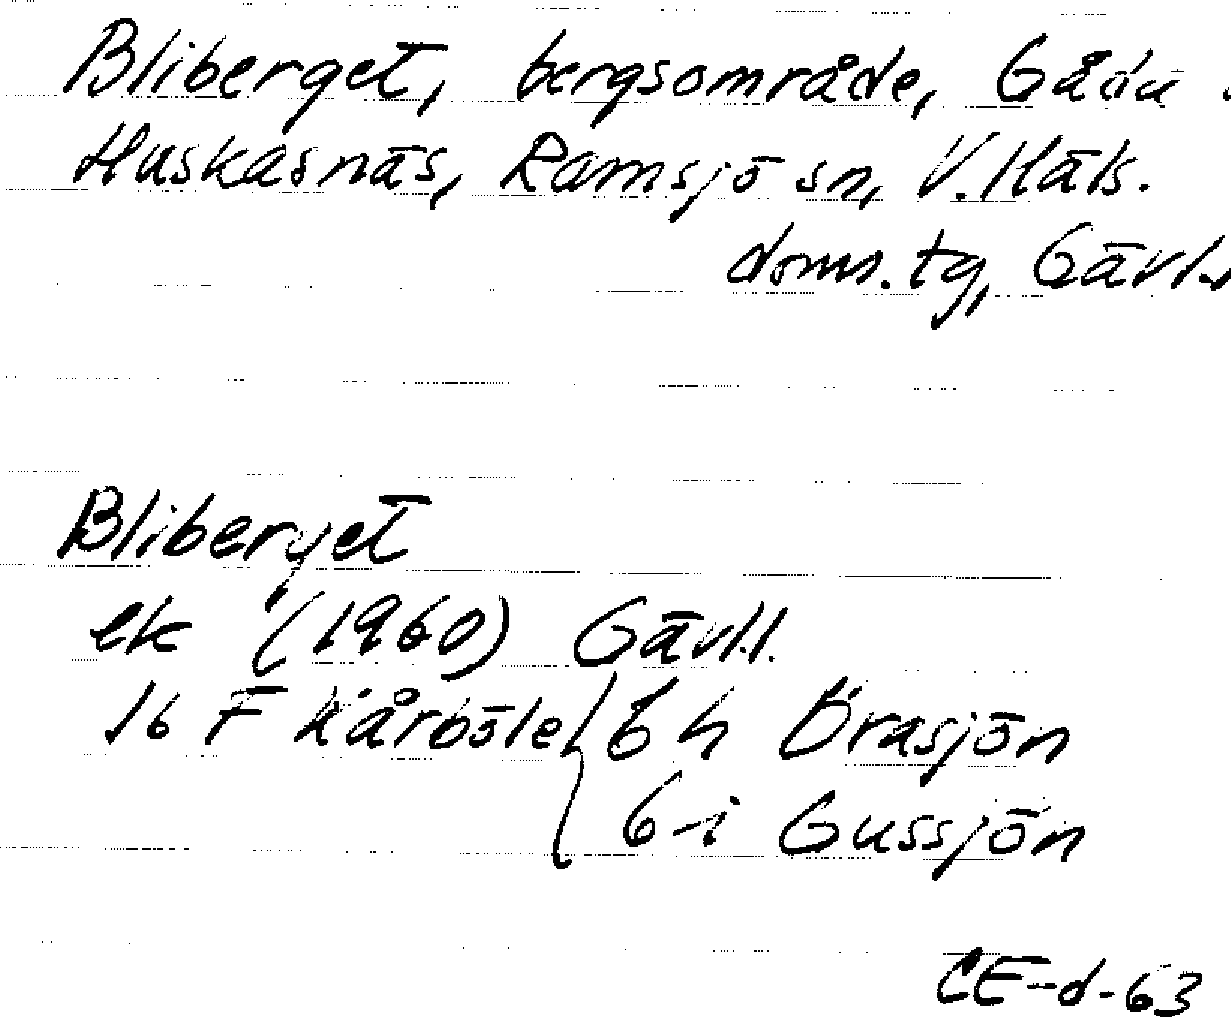 Bliberget, bergsområde, Gåda
Huskasnäs, Ramsjö sn, V. Häls.
doms. tg, Gävl.
Bliberget
ek (1960) Gävl.l.
16 F Kårböle 6 h Örasjön
6 i Gussjön
CE-d-63